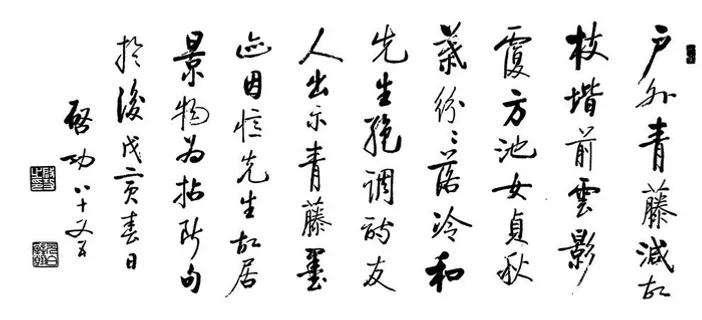 户外青藤減故
枝堦前雲影
覆方池女貞秋
葉紛々落冷和
先生絶調詩友
人出示青藤墨
迹因憶先生故居
景物為拈断句
於後戊寅春日
啓功八十又五